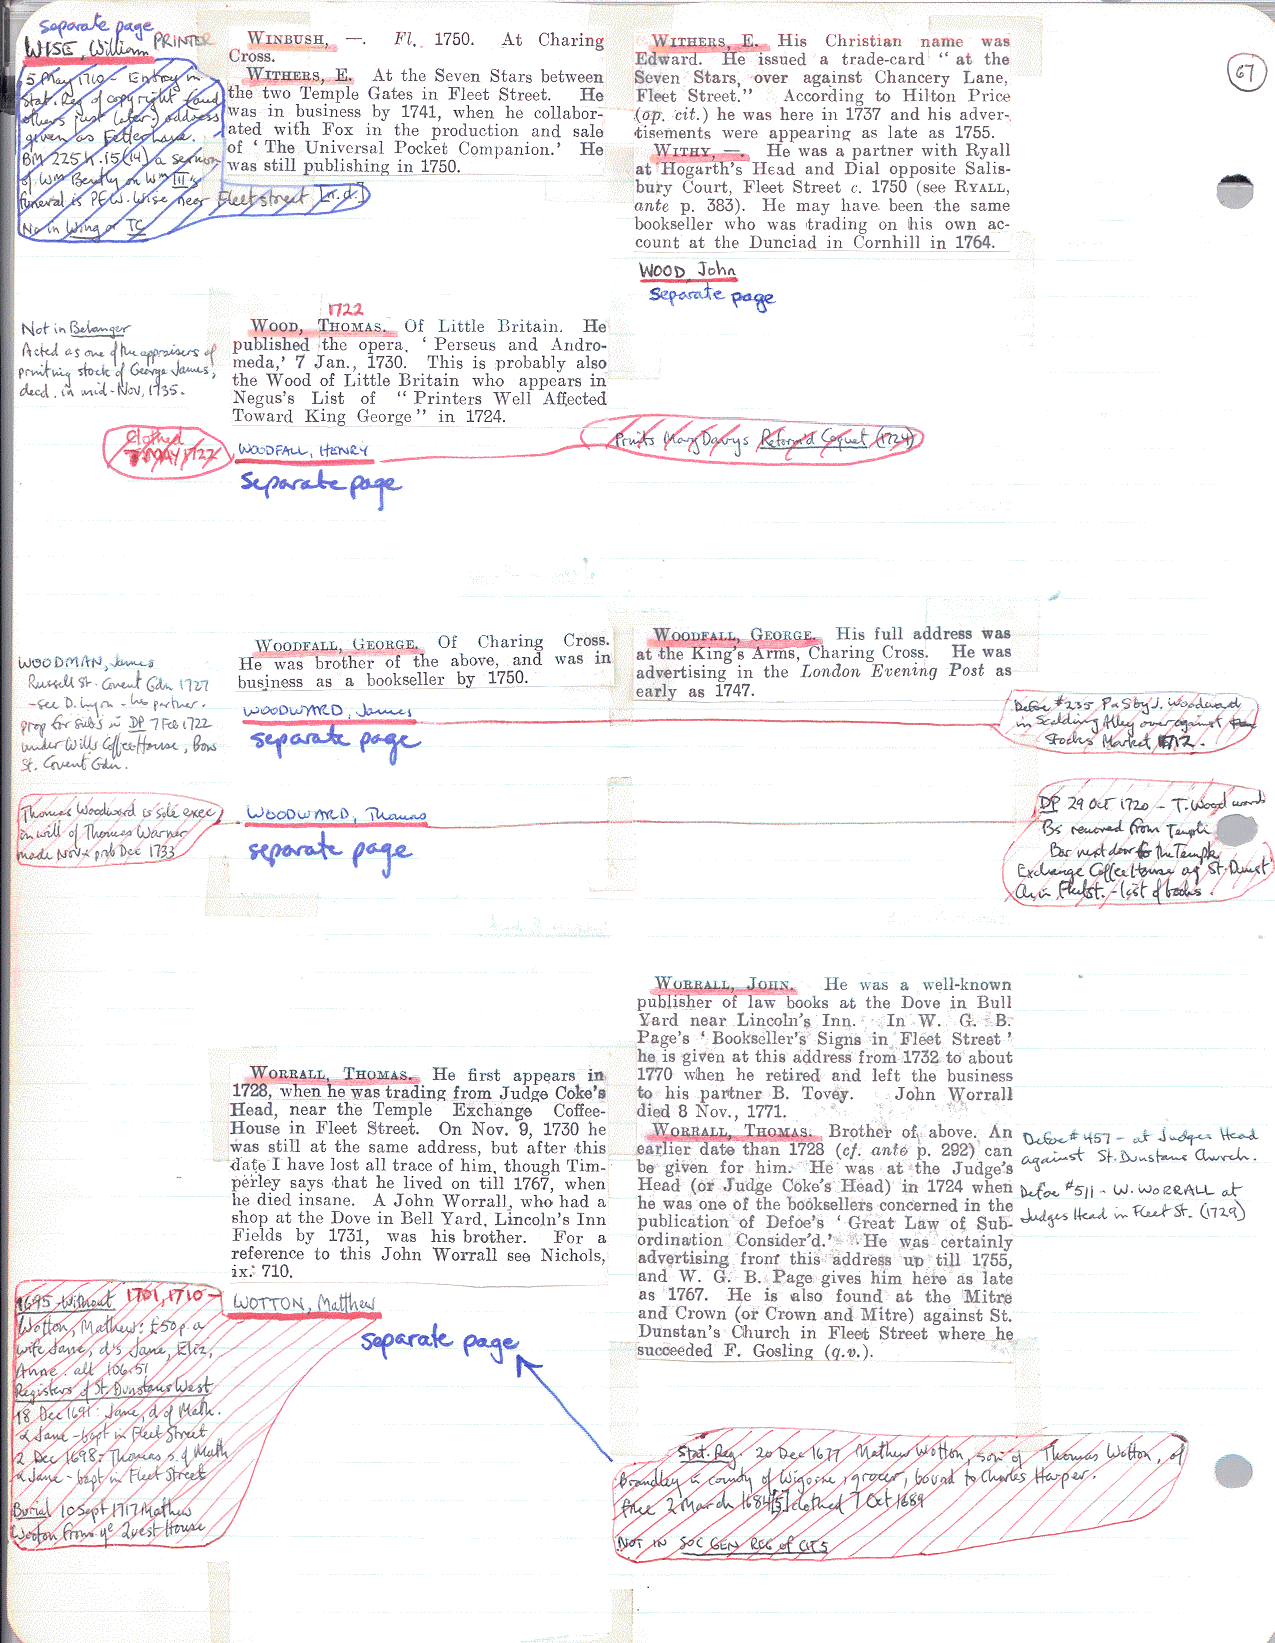 separate page
WISE, William PRINTER
5 May 1710 - Entry in
Stat. Reg of copyright (and
others just later) address
given as Fetter Lane.
BM 225 h.15(14) a sermon
of Wm Bently on Wm III's
funeral is P.f. W. Wise near Fleetstreet [n.d.]
No in Wing or TC
WINBUSH, —. Fl. 1750. At Charing
Cross.
WITHERS, E. At the Seven Stars between
the two Temple Gates in Fleet Street. He
was in business by 1741, when he collabor-
ated with Fox in the production and sale
of ‘ The Universal Pocket Companion.’ He
was still publishing in 1750.
WITHERS, E. His Christian name was
Edward. He issued a trade-card “ at the
Seven Stars, over against Chancery Lane,
Fleet Street.” According to Hilton Price
(op. cit.) he was here in 1737 and his adver-
tisements were appearing as late as 1755.
WITHY, —. He was a partner with Ryall
at Hogarth's Head and Dial opposite Salis-
bury Court, Fleet Street c. 1750 (see RYALL,
ante p. 383). He may have been the same
bookseller who was trading on his own ac-
count at the Dunciad in Cornhill in 1764.
67
WOOD, John
separate page
Not in Belanger
Acted as one of the appraisers of
printing stock of George James,
decd. in mid-Nov, 1735.
1722
WOOD, THOMAS. Of Little Britain. He
published the opera, ‘ Perseus and Andro-
meda,’ 7 Jan., 1730. This is probably also
the Wood of Little Britain who appears in
Negus's List of “ Printers Well Affected
Toward King George ” in 1724.
Clothed
7 MAY 1722
WOODFALL, HENRY
separate page
Prints Mary Davys Reformd Coquet (1724)
WOODMAN, James
Russell St. Covent Gdn 1727
- see D. Lyon - his partner.
prop for subs in DP 7 Feb 1722
under Wills Coffee House, Bow
St. Covent Gdn.
WOODFALL, GEORGE. Of Charing Cross.
He was brother of the above, and was in
business as a bookseller by 1750.
WOODFALL, GEORGE. His full address was
at the King's Arms, Charing Cross. He was
advertising in the London Evening Post as
early as 1747.
WOODWARD, James
separate page
Defoe #235 P & S by J. Woodward
in Scalding Alley over against
Stocks Market, 1712.
Thomas Woodward is sole exec
in will of Thomas Warner
made Nov & prob Dec 1733
WOODWARD, Thomas
separate page
DP 29 Oct 1720 - T. Woodward
Bs removed from Temple
Bar next door to the Temple
Exchange Coffee House ag St. Dunst
Ch. in Fleet St. - list of books.
WORRALL, THOMAS. He first appears in
1728, when he was trading from Judge Coke's
Head, near the Temple Exchange Coffee-
House in Fleet Street. On Nov. 9, 1730 he
was still at the same address, but after this
date I have lost all trace of him, though Tim-
perley says that he lived on till 1767, when
he died insane. A John Worrall, who had a
shop at the Dove in Bell Yard, Lincoln's Inn
Fields by 1731, was his brother. For a
reference to this John Worrall see Nichols,
ix. 710.
WORRALL, JOHN. He was a well-known
publisher of law books at the Dove in Bull
Yard near Lincoln's Inn. In W. G. B.
Page's ‘ Bookseller's Signs in Fleet Street ’
he is given at this address from 1732 to about
1770 when he retired and left the business
to his partner B. Tovey. John Worrall
died 8 Nov., 1771.
WORRALL, THOMAS. Brother of above. An
earlier date than 1728 (cf. ante p. 292) can
be given for him. He was at the Judge's
Head (or Judge Coke's Head) in 1724 when
he was one of the booksellers concerned in the
publication of Defoe's ‘ Great Law of Sub-
ordination Consider'd.’ He was certainly
advertising from this address up till 1755,
and W. G. B. Page gives him here as late
as 1767. He is also found at the Mitre
and Crown (or Crown and Mitre) against St.
Dunstan's Church in Fleet Street where he
succeeded F. Gosling (q.v.).
Defoe #457 - at Judges Head
against St. Dunstans Church.
Defoe #511 - W. WORRALL at
Judges Head in Fleet St. (1729)
1695 - Without 1701, 1710
Wotton, Mathew: £50 p.a
wife Jane, d's Jane, Eliz,
Anne. all 106.51
Registers of St. Dunstans West
18 Dec 1691: Jane, d of Math.
& Jane - bapt in Fleet Street
2 Dec 1698: Thomas s. of Math
& Jane - bapt in Fleet Street
Burial 10 Sept 1717 Mathew
Wooton from ye Quest House
WOTTON, Matthew
separate page
Stat. Reg. 20 Dec 1677 Mathew Wotton, son of Thomas Wotton, of
Brandley in county of Wigorne, grocer, bound to Charles Harper.
free 2 March 1684[5] clothed 7 Oct 1689
NOT IN SOC GEN REG of CITS